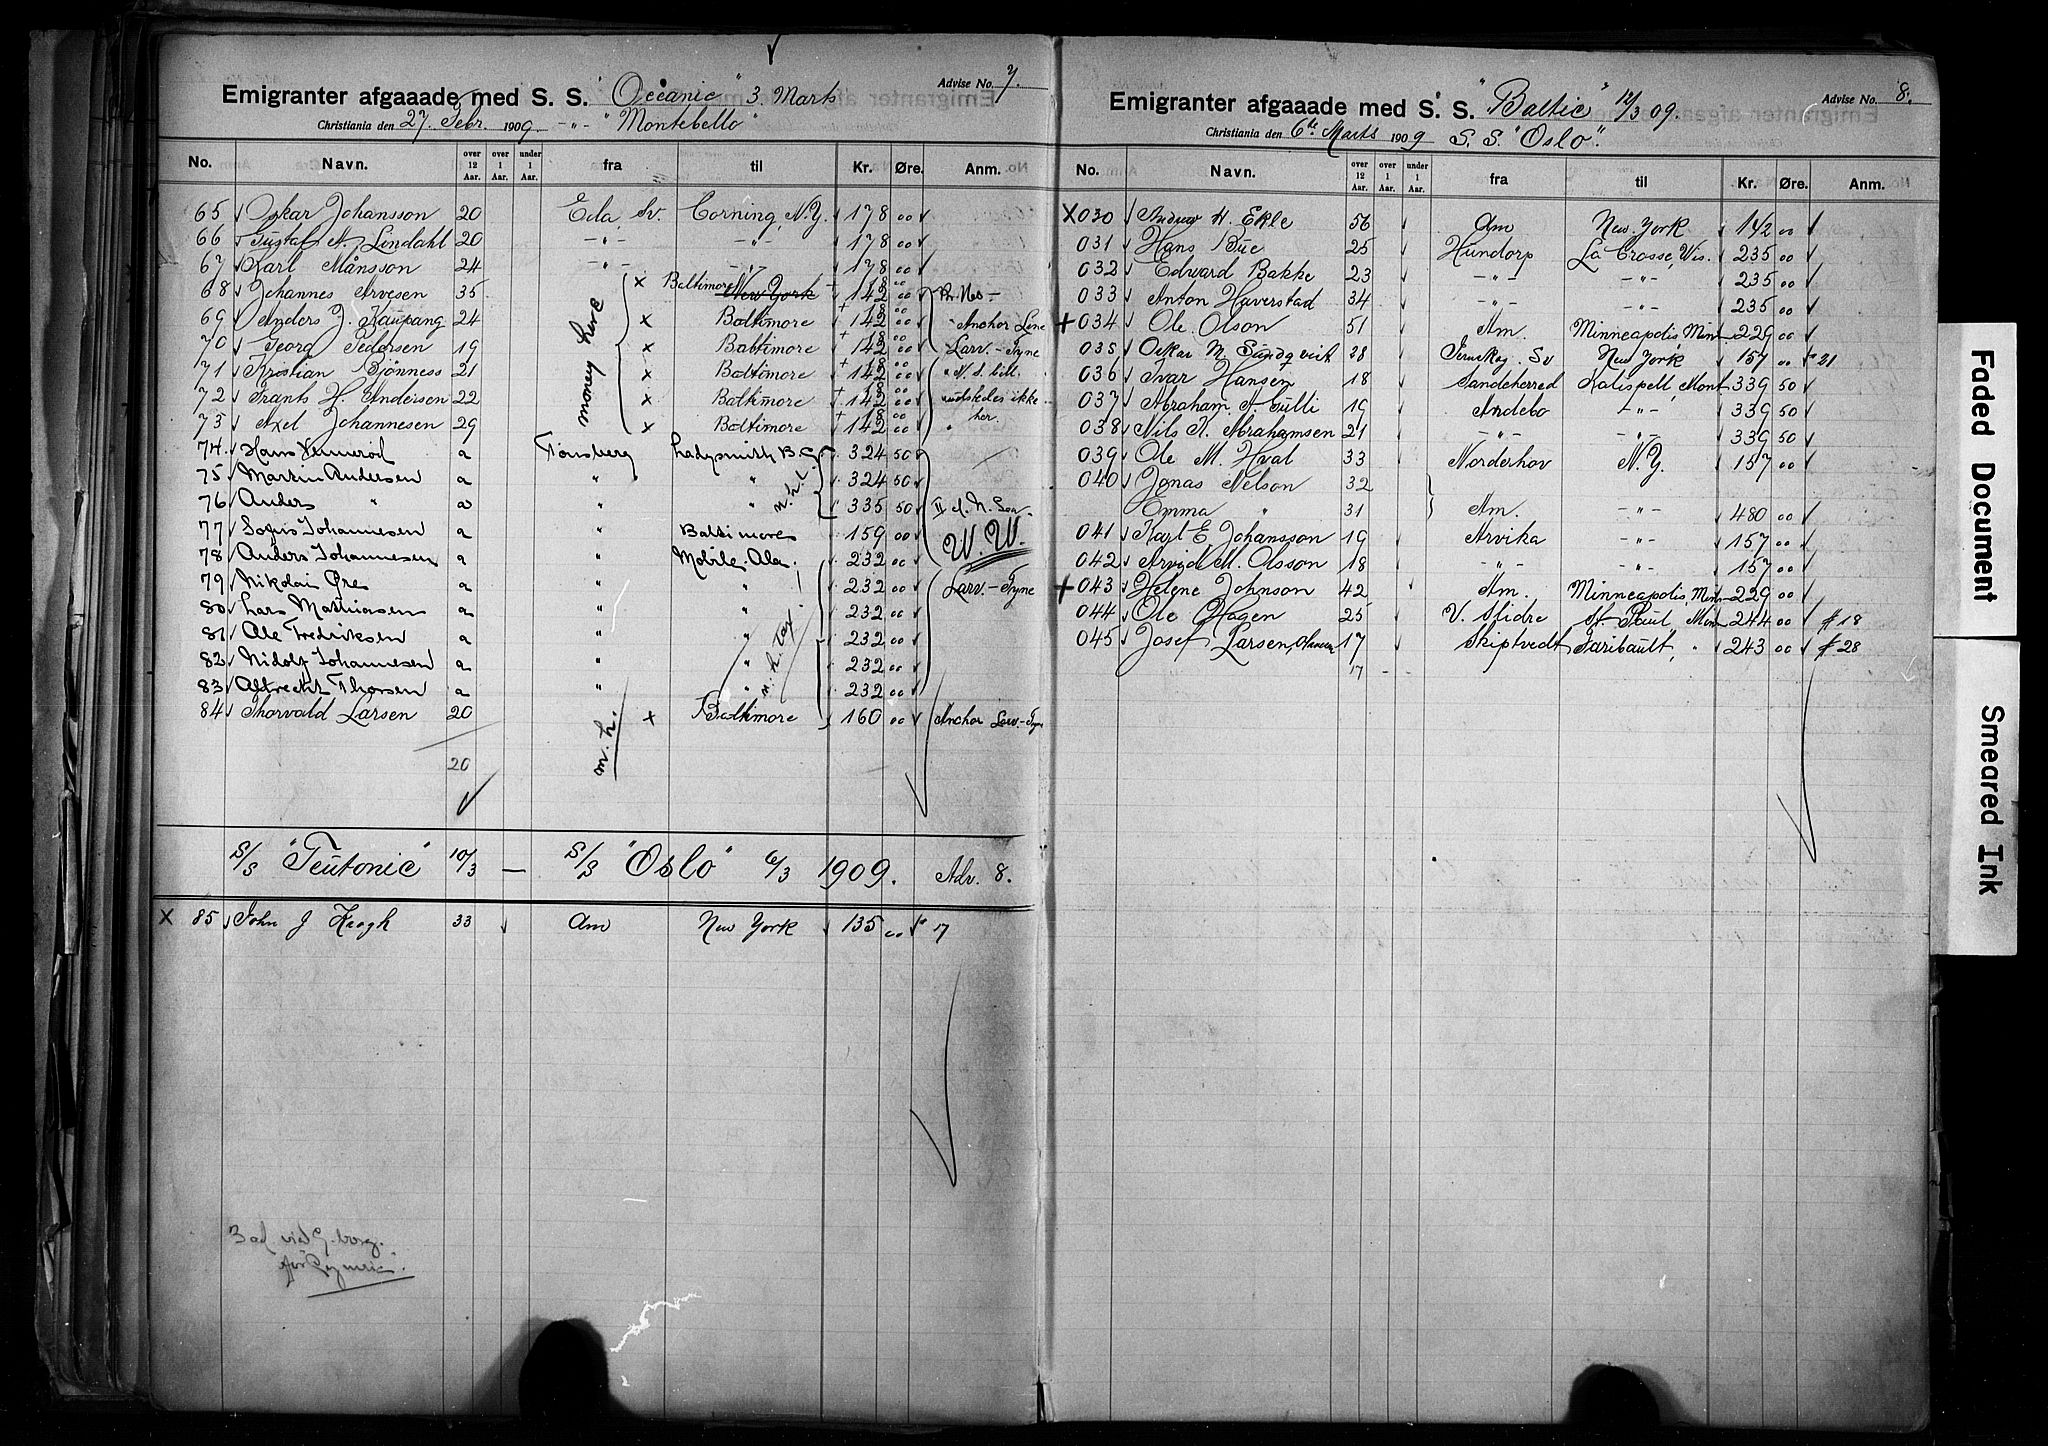 Emigranter afgaaade med S. S. "Oceanic" 3 Marts Advise No. 7.
Christiania den 27. Febr. 1909 -"- "Montebello"
No. Navn. over 12 Aar. over 1 Aar. under 1 Aar. fra til Kr. Øre. Anm.
65 Oskar Johansson 20 Eda, Sv. Corning, N.Y. 178 00
66 Gustaf A. Lindahl 20 -"- -"- 178 00
67 Karl Månsson 24 -"- -"- 178 00
68 Johannes Arvesen 35 x Baltimore New York 142 00
69 Anders J. Kaupang 24 x Baltimore 142 00 Anchor Line
70 Georg Pedersen 19 x Baltimore 142 00 Larv.-Tyne
71 Kristian Bjönness 21 x Baltimore 142 00
72 Frants H. Andersen 22 x Baltimore 142 00 udstedes ikke
73 Axel Johannesen 29 x Baltimore 142 00 her.
money here
74 Hans a Tönsberg Ladysmith B.C. 324 50
75 Martin Andersen a " " 324 50
76 Anders " a " " 335 50
77 Sofus Johannesen a " Baltimore 159 00 W. W.
78 Anders Johannesen a " Mobile Ala. 232 00
79 Nikolai Øre a " " 232 00 Larv-Tyne
80 Lars Mathiasen a " " 232 00
81 Ole Fredriksen a " " 232 00
82 Nidolf Johannesen a " " 232 00
83 Albrecht Thorsen a " " 232 00
84 Thorvald Larsen 20 m. h. x Baltimore 160 00 Anchor Larv-Tyne
20
S/S "Teutonic" 10/3 — S/S "Oslo" 6/3 1909. Adv. 8.
X 85 John J Keogh 33 Am New York 135 00 17
Emigranter afgaaade med S. S. "Baltic" 12/3 09. Advise No. 8.
Christiania den 6te Marts 1909 S. S. "Oslo".
No. Navn. over 12 Aar. over 1 Aar. under 1 Aar. fra til Kr. Øre. Anm.
X 030 Andrew H. Ekle 56 Am New York 142 00
031 Hans Bue 25 Hundorp La Crosse, Wis. 235 00
032 Edward Bakke 23 -"- -"- 235 00
033 Anton Haverstad 34 -"- -"- 235 00
+ 034 Ole Olson 51 Am. Minneapolis, Minn 229 00
035 Oskar M. Sundqvist 28 New York 157 00 $ 21
036 Ivar Hansen 18 Sandeherred Kalispell, Mont 339 50
037 Abraham A. Gulli 19 Andebo -"- 339 50
038 Nils A. Abrahamsen 21 -"- -"- 339 50
039 Ole M. Hval 33 Norderhov N.Y. 157 00
040 Jonas Nelson 32
Emma " 31 Am. -"- 480 00
041 Karl E Johansson 19 Arvika -"- 157 00
042 Arvid M. Olsson 18 -"- -"- 157 00
+ 043 Helene Johnson 42 Am. Minneapolis, Minn 229 00
044 Ole Hagen 25 V. Slidre St. Paul, Min 244 00 $ 18
045 Josef Larsen, Hansen 17 Skiptvedt Faribault, " 243 00 $ 28
17 - -
Faded Document
Smeared Ink